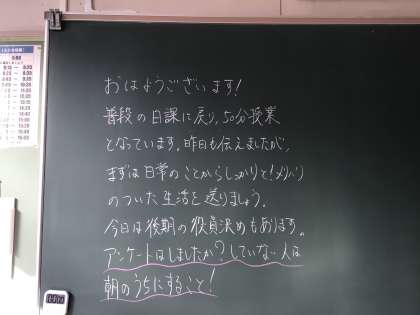 おはようございます!
普段の日課に戻り、50分授業
となっています。昨日も伝えましたが、
まずは日常のことからしっかりと!メリハリ
のついた生活を送りましょう。
今日は後期の役員決めもあります。
アンケートはしましたか?していない人は
朝のうちにすること!